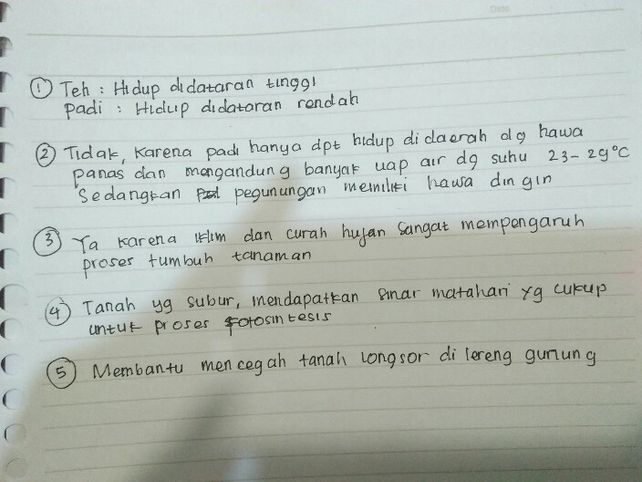 Date
① Teh : Hidup didataran tinggi
Padi : Hidup didataran rendah
② Tidak, karena padi hanya dpt hidup di daerah dg hawa
panas dan mengandung banyak uap air dg suhu 23-29°C
Sedangkan pegunungan memiliki hawa dingin
③ Ya karena iklim dan curah hujan sangat mempengaruh
proses tumbuh tanaman
④ Tanah yg subur, mendapatkan sinar matahari yg cukup
untuk proses fotosintesis
⑤ Membantu mencegah tanah longsor di lereng gunung